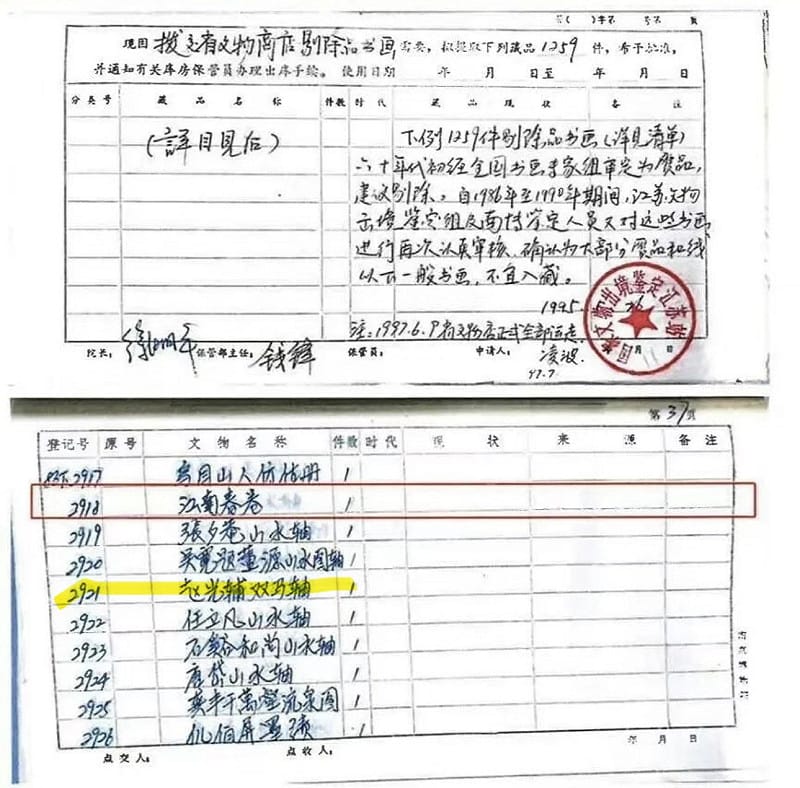 第( )字第 号第 页
现因 拨交省文物商店剔除品书画 需要,拟提取下列藏品 1259 件,希予批准,
并通知有关库房保管员办理出库手续。 使用日期 年 月 日至 年 月 日
分类号 藏品名称 件数 时代 藏品现状 备注
(詳目見后)
下例1259件剔除品书画(详见清单)
六十年代初经全国书画专家组审定为贋品,
建议剔除。自1986年至1990年期间,江苏文物
出境鉴定组及面特鉴定人员又对这些书画
进行再次认真审核,确认为大部分贋品和线
以下一般书画,不宜入藏。
1995
国家文物出境鉴定江苏站
注:1997.6.9 省文物店正式全部运走
院长: 徐湖平 保管部主任: 钱锋 保管员: 申请人: 凌波 月 日
97.7.
第 37 页
登记号 原号 文物名称 件数 时代 现状 来源 备注
2917 鸟目山人仿古册 1
2918 江南春卷 1
2919 張夕庵山水轴 1
2920 吴寛题董源山水图轴 1
2921 赵光辅双马轴 1
2922 任立凡山水轴 1
2923 石谿和尚山水轴 1
2924 唐岱山水轴 1
2925 千萬壑流泉图
2926 仉伯屏墨 1
点交人: 点收人: 年 月 日